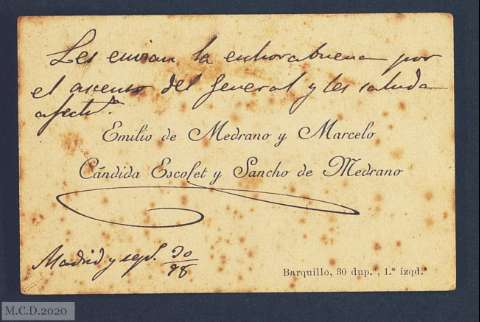 Les envian la enhorabuena por
el ascenso del General y les saluda
afecte.
Emilio de Medrano y Marcelo
Cándida Escolet y Sancho de Medrano
Madrid y sepl. 30/98
Barquillo, 30 dup., 1.º izqd.ª
M.C.D.2020